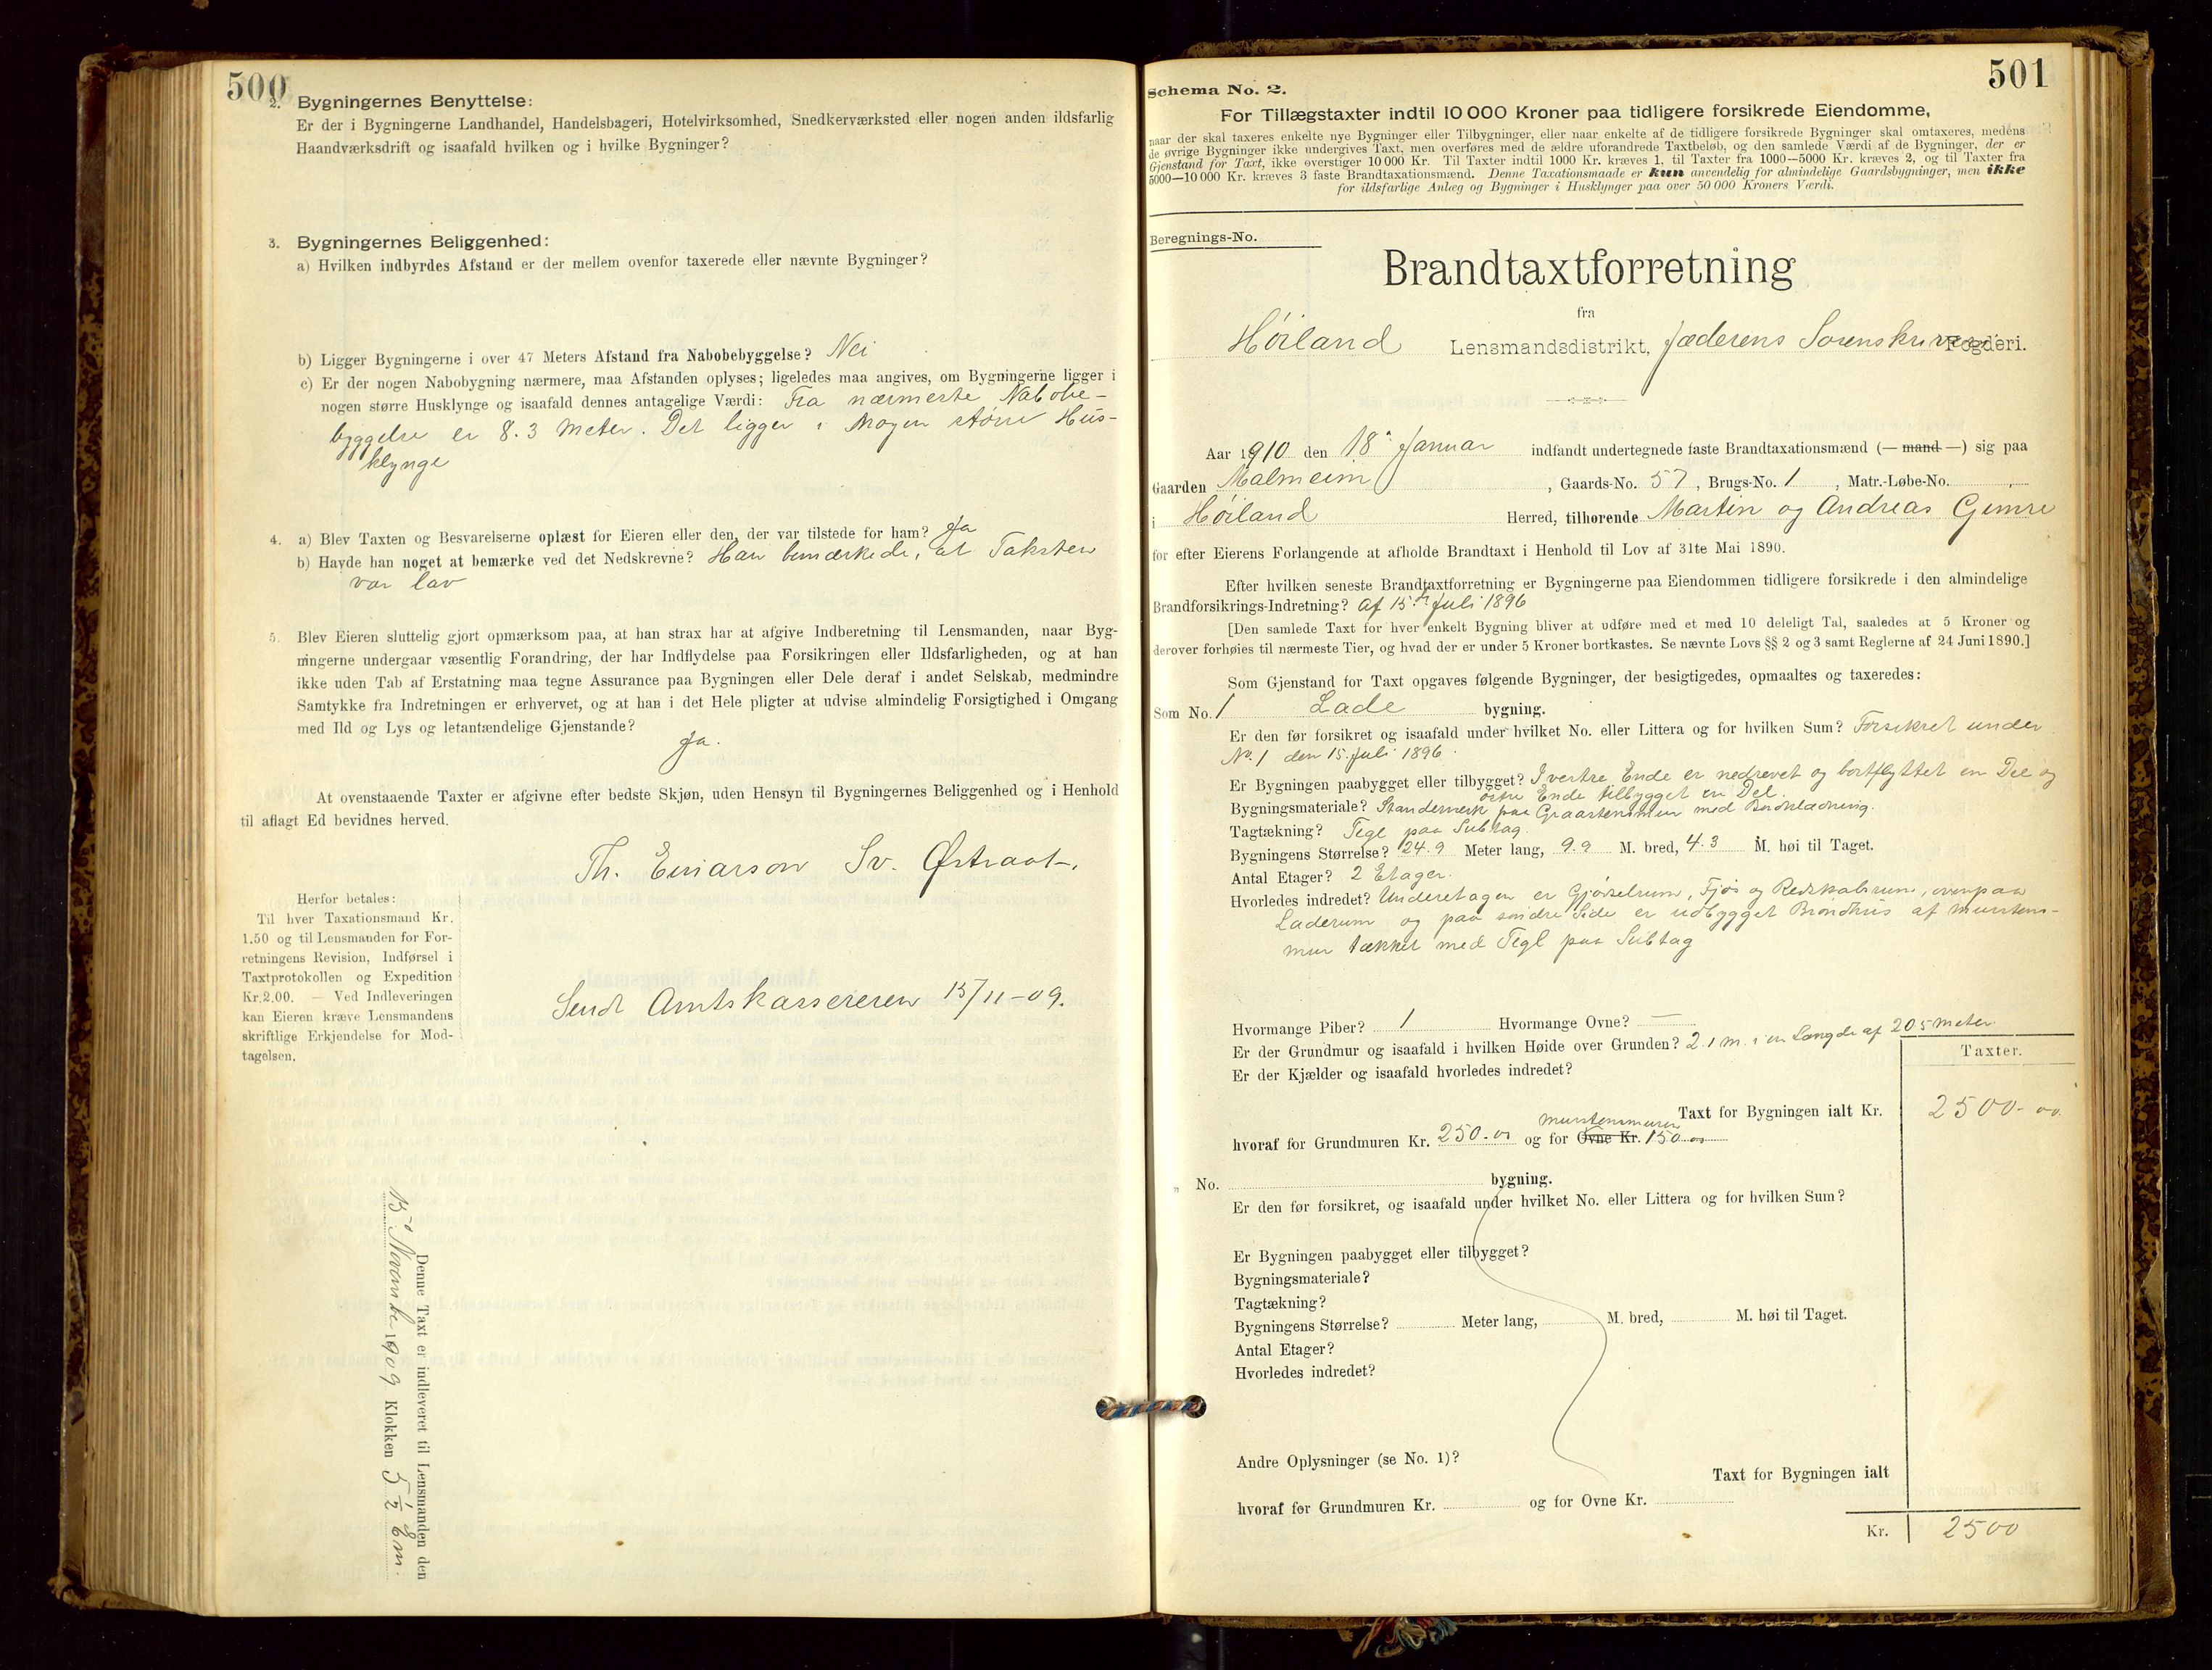 500
2. Bygningernes Benyttelse:
Er der i Bygningerne Landhandel, Handelsbageri, Hotelvirksomhed, Snedkerværksted eller nogen anden ildsfarlig
Haandværksdrift og isaafald hvilken og i hvilke Bygninger?
3. Bygningernes Beliggenhed:
a) Hvilken indbyrdes Afstand er der mellem ovenfor taxerede eller nævnte Bygninger?
b) Ligger Bygningerne i over 47 Meters Afstand fra Nabobebyggelse? Nei
c) Er der nogen Nabobygning nærmere, maa Afstanden oplyses; ligeledes maa angives, om Bygningerne ligger i
nogen større Husklynge og isaafald dennes antagelige Værdi: Fra nærmeste Nabobe-
byggelse er 8.3 Meter. Det ligger i Nogen større Hus-
klynge
4. a) Blev Taxten og Besvarelserne oplæst for Eieren eller den, der var tilstede for ham? Ja
b) Havde han noget at bemærke ved det Nedskrevne? Han bemærkede, at Taksten
var lav
5. Blev Eieren sluttelig gjort opmærksom paa, at han strax har at afgive Indberetning til Lensmanden, naar Byg-
ningerne undergaar væsentlig Forandring, der har Indflydelse paa Forsikringen eller Ildsfarligheden, og at han
ikke uden Tab af Erstatning maa tegne Assurance paa Bygningen eller Dele deraf i andet Selskab, medmindre
Samtykke fra Indretningen er erhvervet, og at han i det Hele pligter at udvise almindelig Forsigtighed i Omgang
med Ild og Lys og letantændelige Gjenstande?
Ja.
At ovenstaaende Taxter er afgivne efter bedste Skjøn, uden Hensyn til Bygningernes Beliggenhed og i Henhold
til aflagt Ed bevidnes herved.
Th. Einarson Sv. Østraat.
Herfor betales:
Til hver Taxationsmand Kr.
1.50 og til Lensmanden for For-
retningens Revision, Indførsel i
Taxtprotokollen og Expedition
Kr. 2.00. — Ved Indleveringen
kan Eieren kræve Lensmandens
skriftlige Erkjendelse for Mod-
tagelsen.
Sendt Amtskassereren 15/11-09.
Denne Taxt er indleveret til Lensmanden den
15 November 1909 Klokken 5 1/2 Em.
501
Schema No. 2.
For Tillægstaxter indtil 10 000 Kroner paa tidligere forsikrede Eiendomme,
naar der skal taxeres enkelte nye Bygninger eller Tilbygninger, eller naar enkelte af de tidligere forsikrede Bygninger skal omtaxeres, medens
de øvrige Bygninger ikke undergives Taxt, men overføres med de ældre uforandrede Taxtbeløb, og den samlede Værdi af de Bygninger, der er
Gjenstand for Taxt, ikke overstiger 10 000 Kr. Til Taxter indtil 1000 Kr. kræves 1, til Taxter fra 1000—5000 Kr. kræves 2, og til Taxter fra
5000—10 000 Kr. kræves 3 faste Brandtaxationsmænd. Denne Taxationsmaade er kun anvendelig for almindelige Gaardsbygninger, men ikke
for ildsfarlige Anlæg og Bygninger i Husklynger paa over 50 000 Kroners Værdi.
Beregnings-No.
Brandtaxtforretning
fra
Höiland Lensmandsdistrikt, Jæderens Sorenskriveri Fogderi.
Aar 1910 den 18 Januar indfandt undertegnede faste Brandtaxationsmænd (— mand —) sig paa
Gaarden Malmeim, Gaards-No. 57, Brugs-No. 1, Matr.-Løbe-No.
i Höiland Herred, tilhørende Martin og Andreas Gimre
for efter Eierens Forlangende at afholde Brandtaxt i Henhold til Lov af 31te Mai 1890.
Efter hvilken seneste Brandtaxtforretning er Bygningerne paa Eiendommen tidligere forsikrede i den almindelige
Brandforsikrings-Indretning? Af 15de Juli 1896
[Den samlede Taxt for hver enkelt Bygning bliver at udføre med et med 10 deleligt Tal, saaledes at 5 Kroner og
derover forhøies til nærmeste Tier, og hvad der er under 5 Kroner bortkastes. Se nævnte Lovs §§ 2 og 3 samt Reglerne af 24 Juni 1890.]
Som Gjenstand for Taxt opgaves følgende Bygninger, der besigtigedes, opmaaltes og taxeredes:
Som No. 1 Lade bygning.
Er den før forsikret og isaafald under hvilket No. eller Littera og for hvilken Sum? Forsikret under
No. 1 den 15. Juli 1896.
Er Bygningen paabygget eller tilbygget? I vestre Ende er nedrevet og bortflyttet en Del og
østre Ende tilbygget en Del.
Bygningsmateriale? Standerverk paa Graastensmur med Bordklædning.
Tagtækning? Tegl paa Subtag.
Bygningens Størrelse? 24.9 Meter lang, 9.9 M. bred, 4.3 M. høi til Taget.
Antal Etager? 2 Etager.
Hvorledes indredet? Underetagen er Gjødselrum, Fjøs og Redskabsrum, ovenpaa
Laderum og paa søndre Side er udbygget Brøndhus af murstens-
mur tækket med Tegl paa Subtag
Hvormange Piber? 1 Hvormange Ovne? —
Er der Grundmur og isaafald i hvilken Høide over Grunden? 2.1 m. i en Længde af 20.5 meter.
Er der Kjælder og isaafald hvorledes indredet?
Taxter.
Taxt for Bygningen ialt Kr. 2500.00
murstensmuren
hvoraf for Grundmuren Kr. 250.00 og for Ovne Kr. 150.00
„ No. bygning.
Er den før forsikret, og isaafald under hvilket No. eller Littera og for hvilken Sum?
Er Bygningen paabygget eller tilbygget?
Bygningsmateriale?
Tagtækning?
Bygningens Størrelse? Meter lang, M. bred, M. høi til Taget.
Antal Etager?
Hvorledes indredet?
Andre Oplysninger (se No. 1)?
Taxt for Bygningen ialt
hvoraf for Grundmuren Kr. og for Ovne Kr.
Kr. 2500